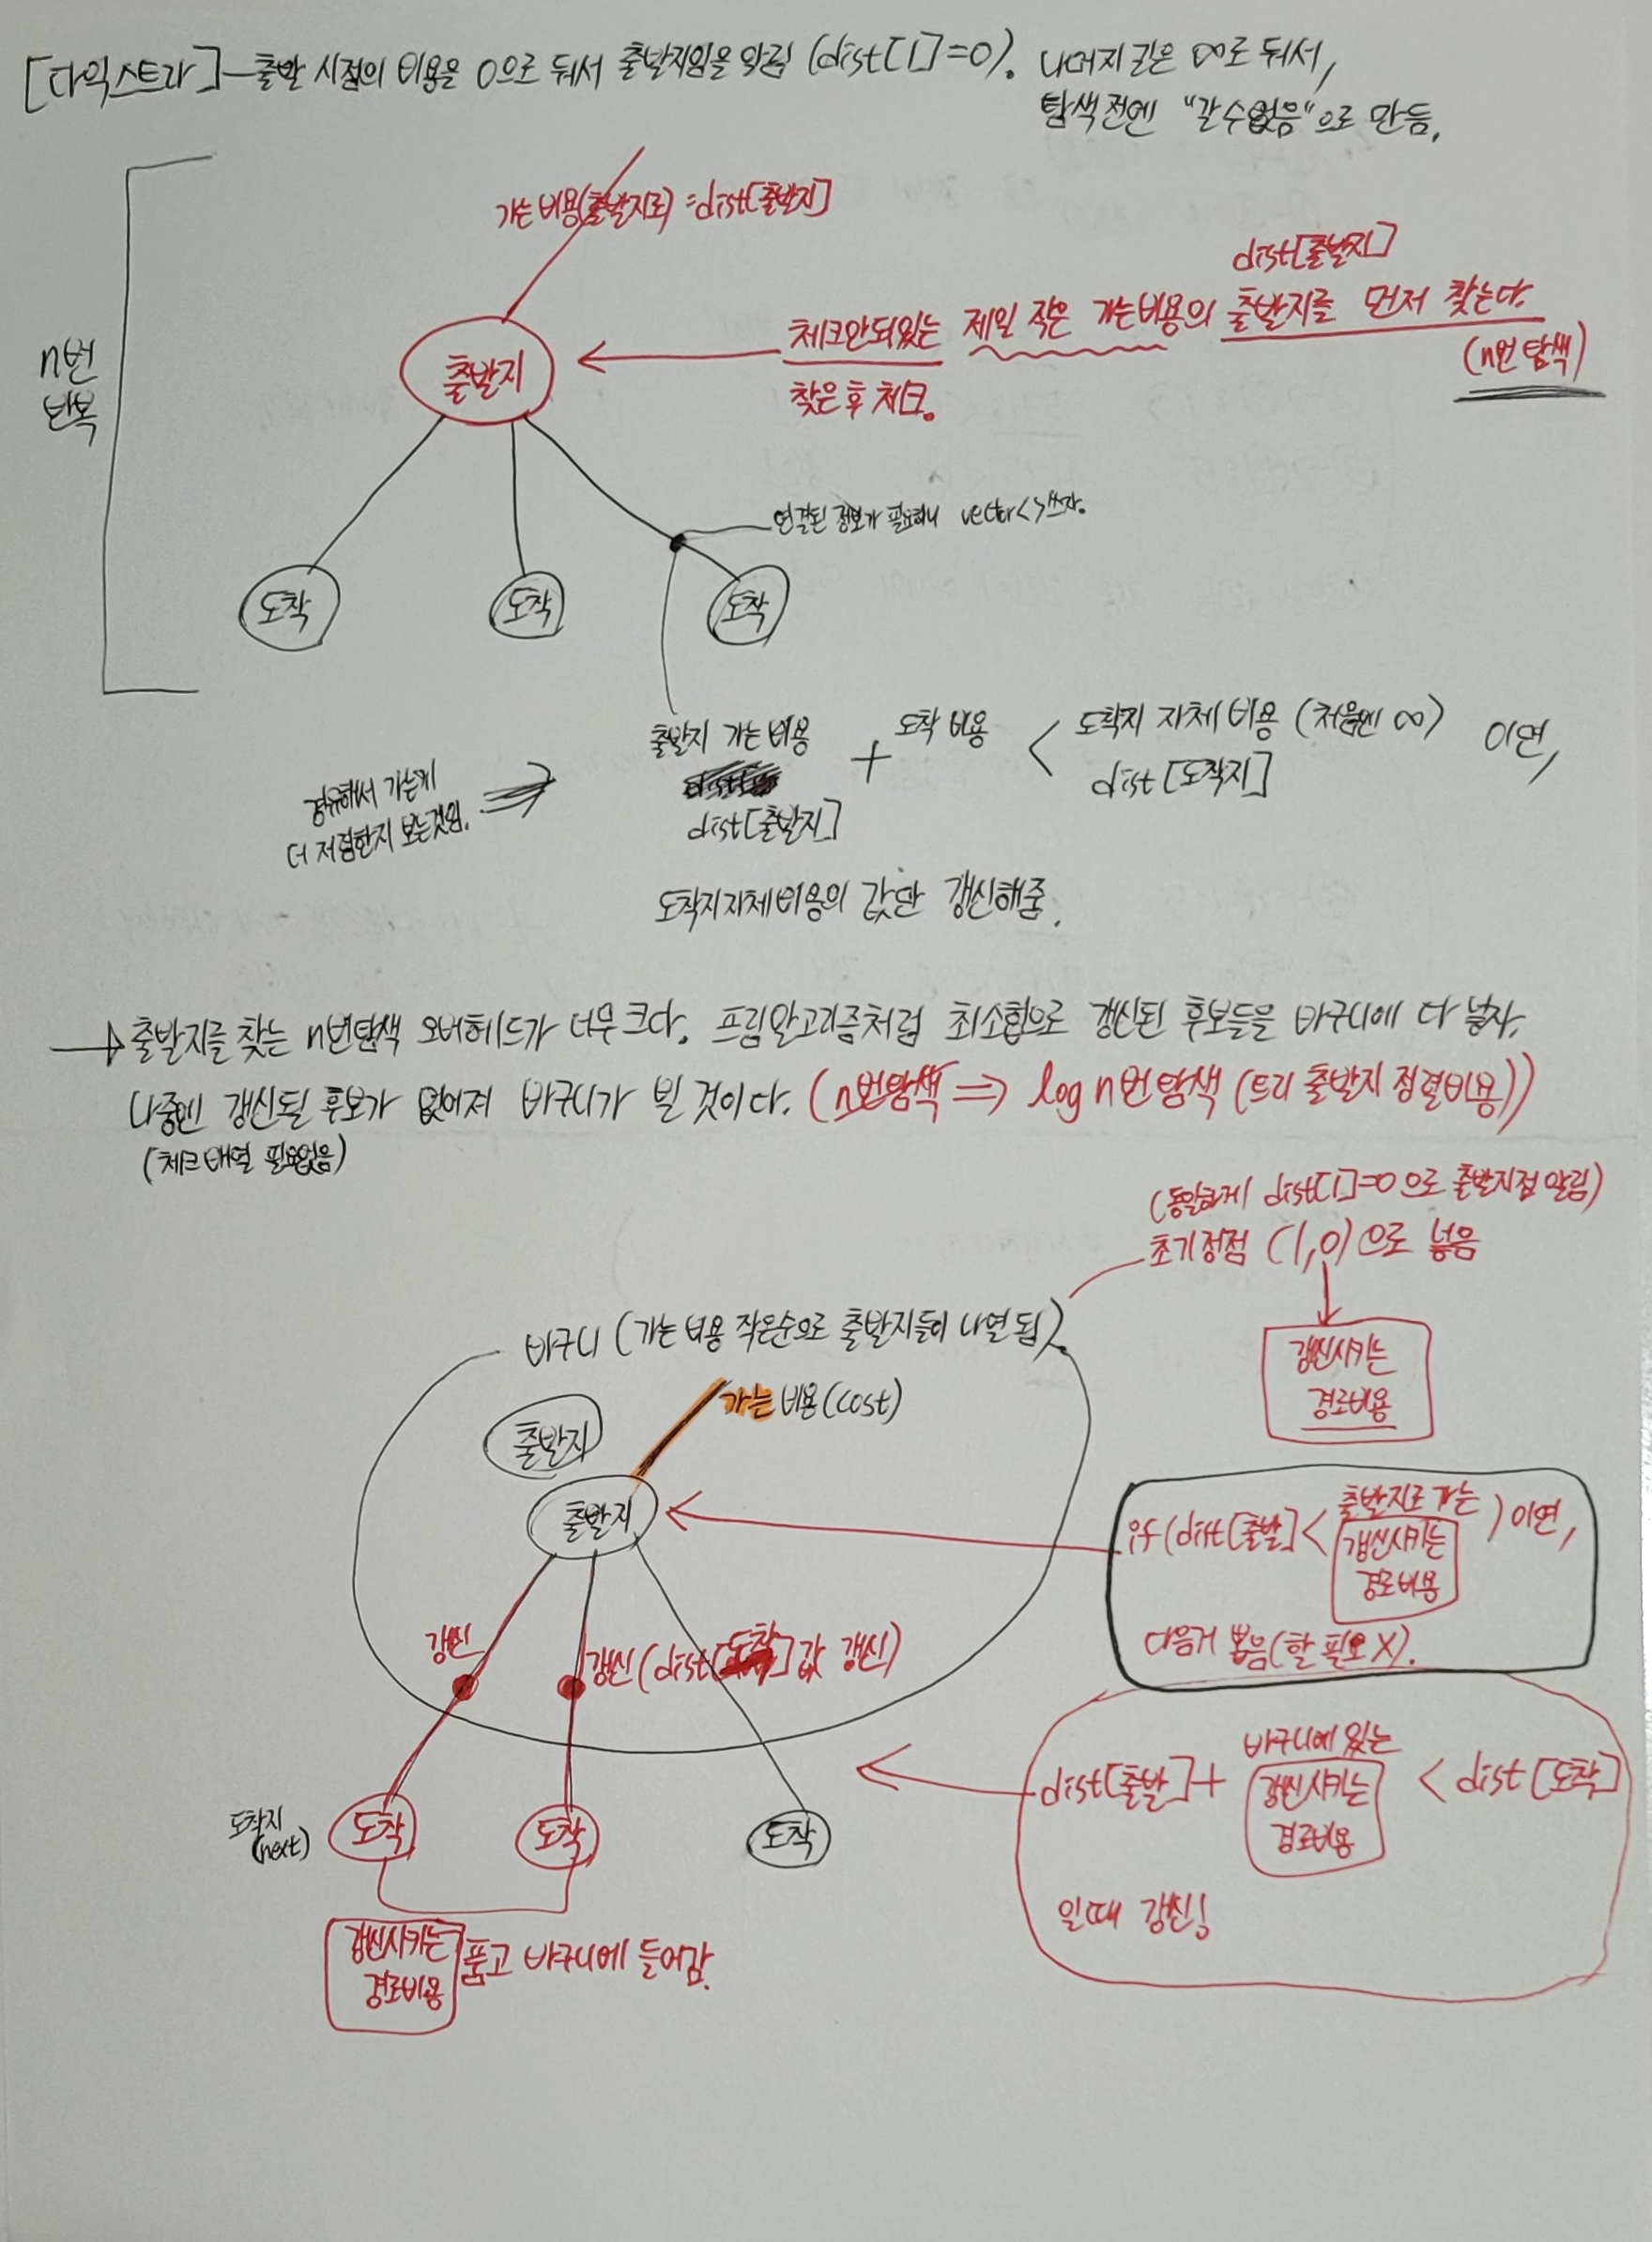 [다익스트라] - 출발 시점의 비용을 0으로 둬서 출발지임을 알림 (dist[1]=0). 나머지 값은 ∞로 둬서,
탐색전엔 "갈수없음"으로 만듬.
가는 비용(출발지로) = dist[출발지]
dist[출발지]
체크안되있는 제일 작은 가는비용의 출발지를 먼저 찾는다.
(n번 탐색)
찾은 후 체크.
n번
반복
출발지
연결된 정보가 필요하니 vector<>쓰자.
도착
도착
도착
출발지 가는 비용 + 도착 비용 < 도착지 자체 비용 (처음엔 ∞) 이면,
dist[출발지]
dist[도착지]
경유해서 가는게
더 저렴한지 보는것임.
도착지자체비용의 값만 갱신해줌.
→ 출발지를 찾는 n번탐색 오버헤드가 너무 크다. 프림알고리즘처럼 최소힙으로 갱신된 후보들을 바구니에 다 넣자.
나중엔 갱신될 후보가 없어져 바구니가 빌 것이다. (n번탐색 => log n번 탐색 (트리 출발지 정렬비용))
(체크 배열 필요없음)
(동일하게 dist[1]=0으로 출발지점 알림)
초기정점 (1,0)으로 넣음
갱신시키는
경로비용
바구니 (가는 비용 작은순으로 출발지들이 나열 됨).
가는 비용(cost)
출발지
출발지
if(dist[출발]< 출발지로 가는
갱신시키는
경로비용
) 이면,
다음거 뽑음(할 필요X).
갱신
갱신(dist[도착]값 갱신)
바구니에 있는
dist[출발]+ 갱신시키는
경로비용
< dist[도착]
일때 갱신!
도착지
(next)
도착
도착
도착
갱신시키는
경로비용
품고 바구니에 들어감.